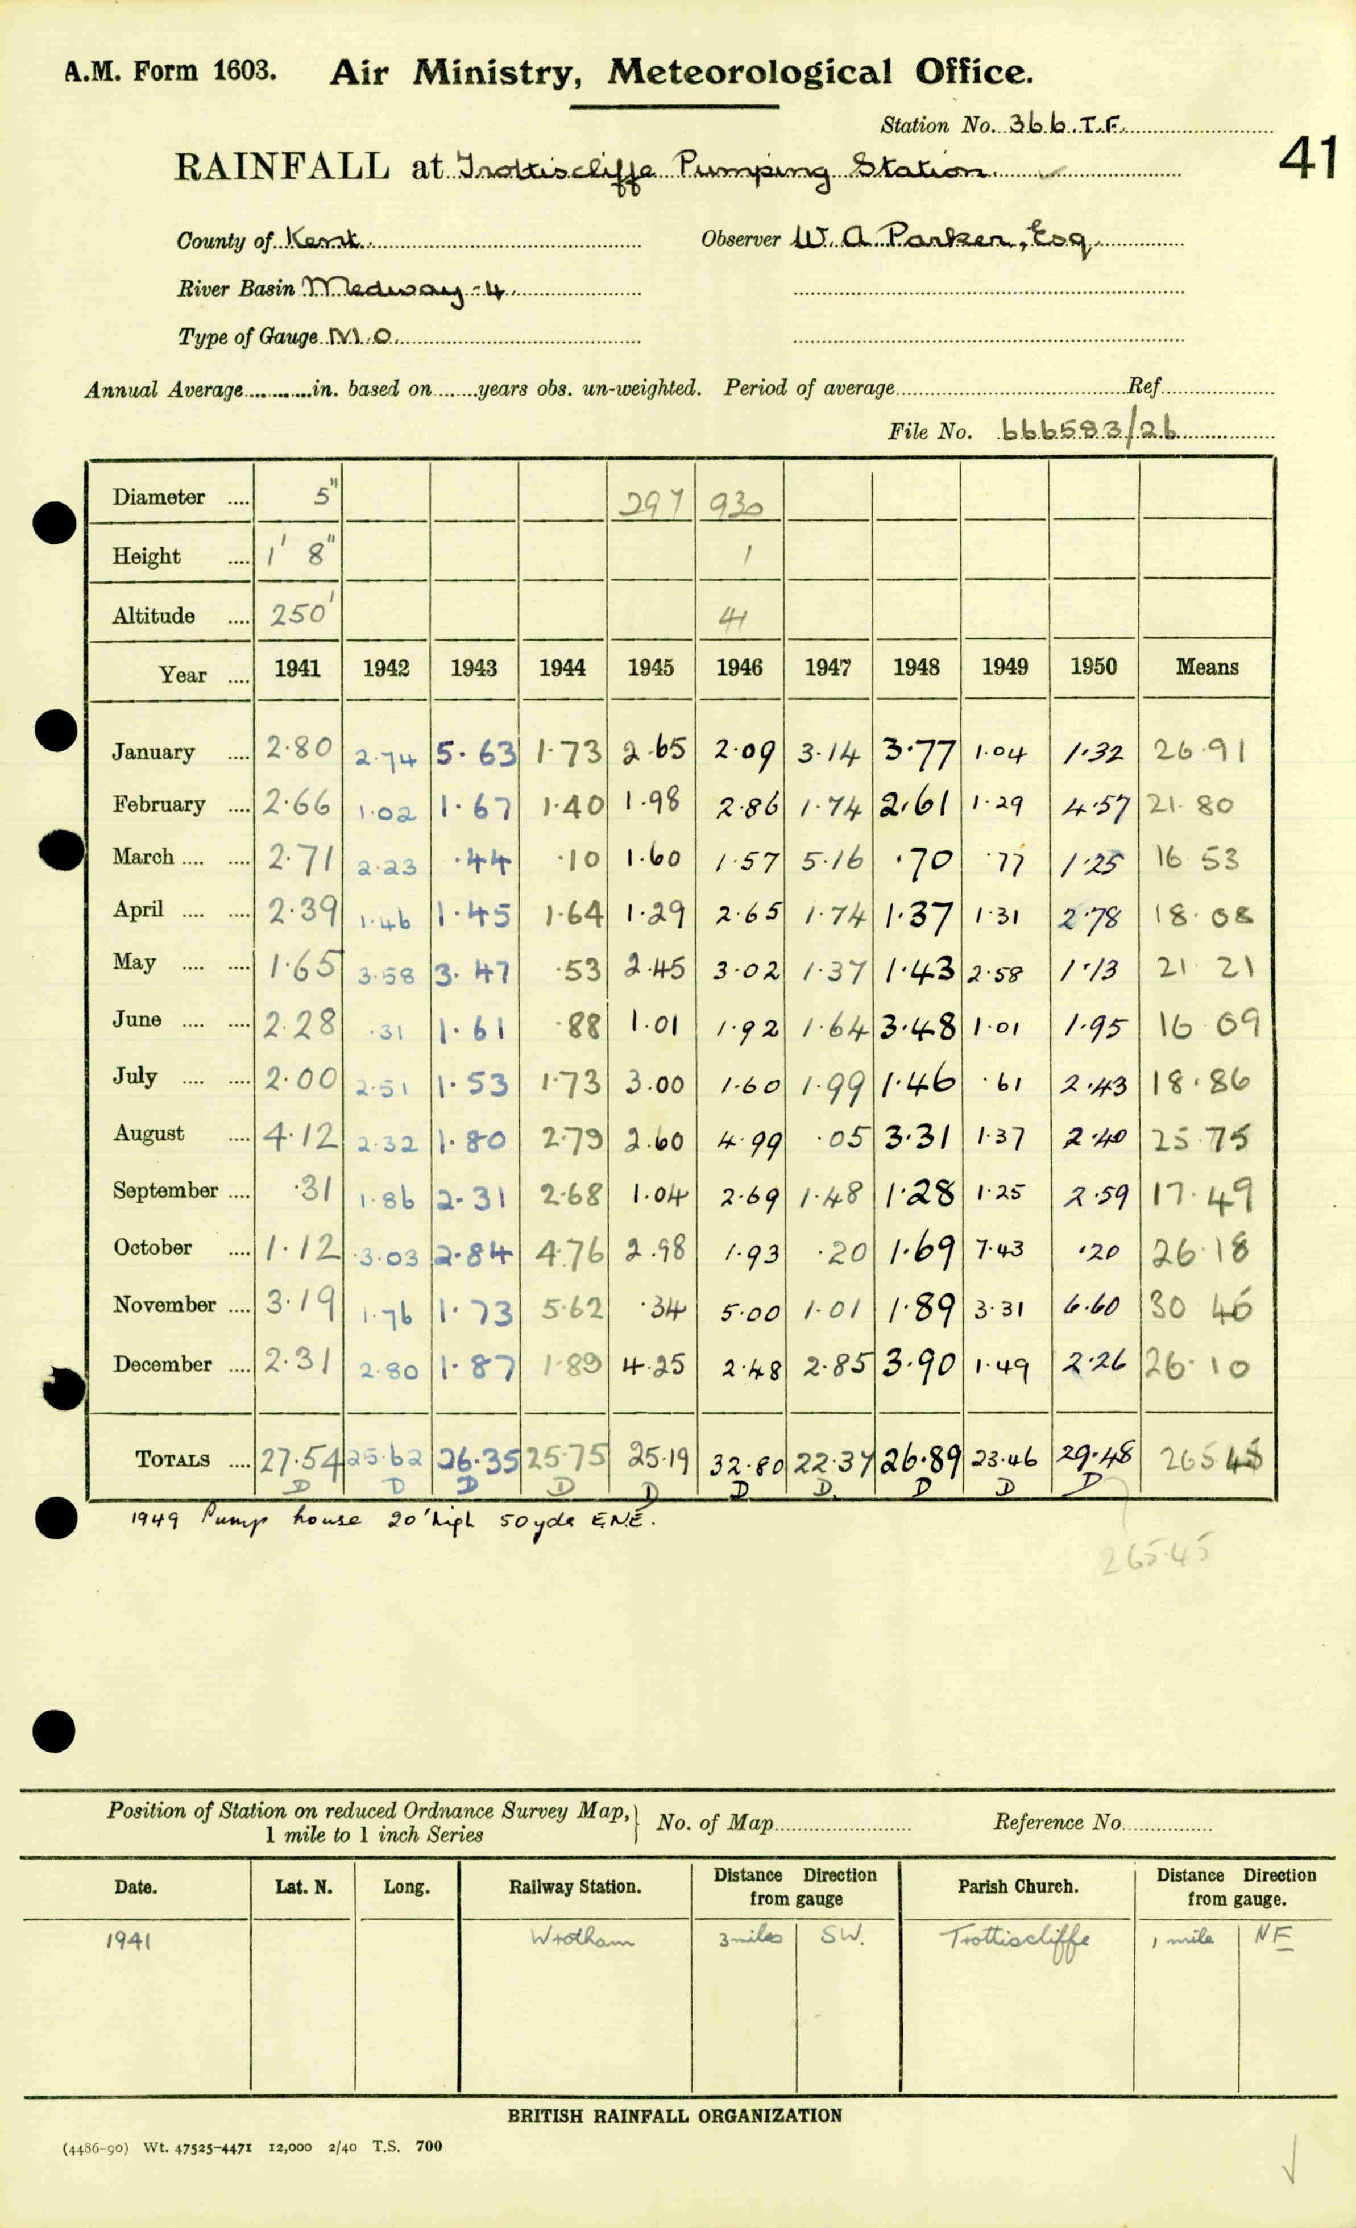 A.M. Form 1603. Air Ministry, Meteorological Office.
Station No. 366.T.F.
41
RAINFALL at Trottiscliffe Pumping Station.
County of Kent. Observer W. A. Parker, Esq.
River Basin Medway -4.
Type of Gauge M.O.
Annual Average ........ in. based on ....... years obs. un-weighted. Period of average ........ Ref ........
File No. 666583/26
Diameter .... 5" 297 930
Height .... 1' 8" 1
Altitude .... 250' 41
Year .... 1941 1942 1943 1944 1945 1946 1947 1948 1949 1950 Means
January .... 2·80 2·74 5·63 1·73 2·65 2·09 3·14 3·77 1·04 1·32 26·91
February .... 2·66 1·02 1·67 1·40 1·98 2·86 1·74 2·61 1·29 4·57 21·80
March .... .... 2·71 2·23 ·44 ·10 1·60 1·57 5·16 ·70 ·77 1·25 16 53
April .... .... 2·39 1·46 1·45 1·64 1·29 2·65 1·74 1·37 1·31 2·78 18·08
May .... .... 1·65 3·58 3·47 ·53 2·45 3·02 1·37 1·43 2·58 1·13 21·21
June .... .... 2·28 ·31 1·61 ·88 1·01 1·92 1·64 3·48 1·01 1·95 16·09
July .... .... 2·00 2·51 1·53 1·73 3·00 1·60 1·99 1·46 ·61 2·43 18·86
August .... 4·12 2·32 1·80 2·79 2·60 4·99 ·05 3·31 1·37 2·40 25·75
September .... ·31 1·86 2·31 2·68 1·04 2·69 1·48 1·28 1·25 2·59 17·49
October .... 1·12 3·03 2·84 4·76 2·98 1·93 ·20 1·69 7·43 ·20 26·18
November .... 3·19 1·76 1·73 5·62 ·34 5·00 1·01 1·89 3·31 6·60 30 45
December .... 2·31 2·80 1·87 1·89 4·25 2·48 2·85 3·90 1·49 2·26 26·10
TOTALS .... 27·54 25·62 26·35 25·75 25·19 32·80 22·37 26·89 23·46 29·48 265 45
D D D D D D D. D D D
1949 Pump house 20' high 50yds E.N.E.
265·45
Position of Station on reduced Ordnance Survey Map,
1 mile to 1 inch Series
No. of Map ........ Reference No. ........
Date. Lat. N. Long. Railway Station. Distance from gauge Direction Parish Church. Distance from gauge. Direction
1941 Wrotham 3 miles SW. Trottiscliffe 1 mile NE
BRITISH RAINFALL ORGANIZATION
(4486-90) Wt. 47525-4471 12,000 2/40 T.S. 700